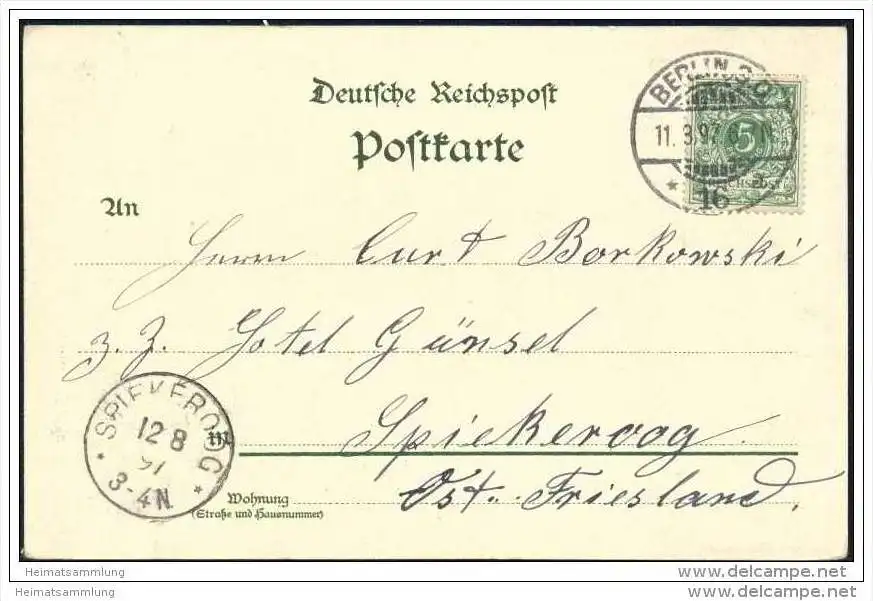 Deutsche Reichspost
Postkarte
BERLIN
11. 8.97
16
5
An
Herrn Curt Borkowski
z. Z. Hotel Günsel
in Spiekeroog
Ost. Friesland.
SPIEKEROOG
12 8
97
3-4N.
Wohnung
(Straße und Hausnummer)
Heimatsammlung
Heimatsammlung
www.delcampe.net
www.delcampe.net